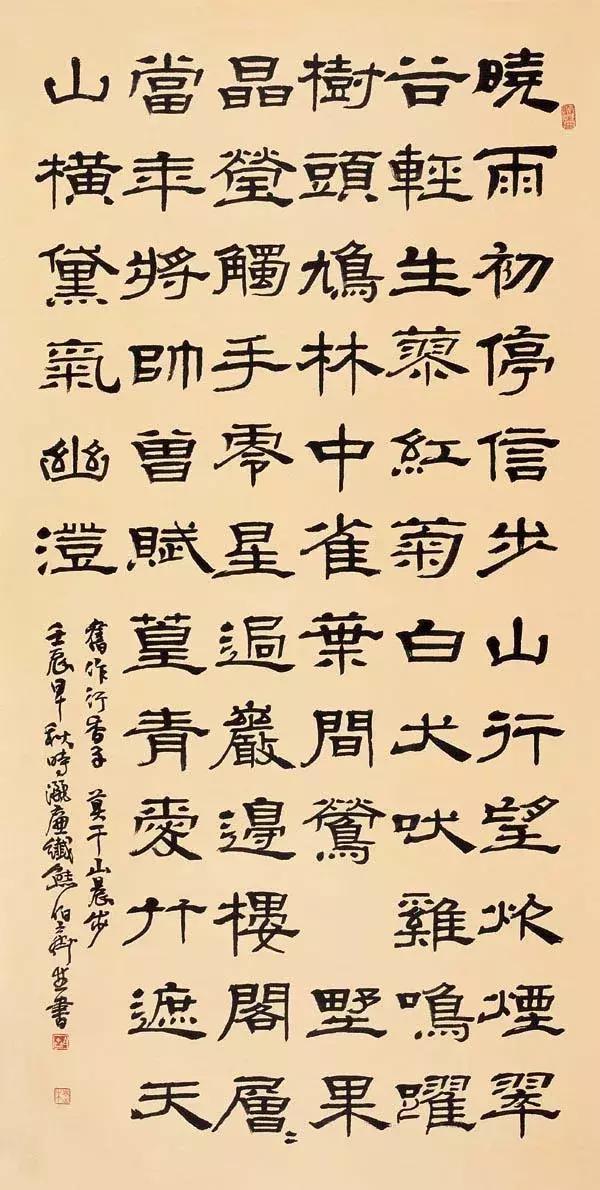 曉雨初停信步山行望炊煙翠
谷輕生蓼紅菊白犬吠雞鳴躍
樹頭鳩林中雀葉間鶯 野果
晶瑩觸手零星過巖邊樓閣層〻
當年將帥曾賦篁青愛竹遮天
山橫黛氣幽澄
舊作行香子 莫干山晨步
壬辰早秋時灑廉纖熊伯齊并書